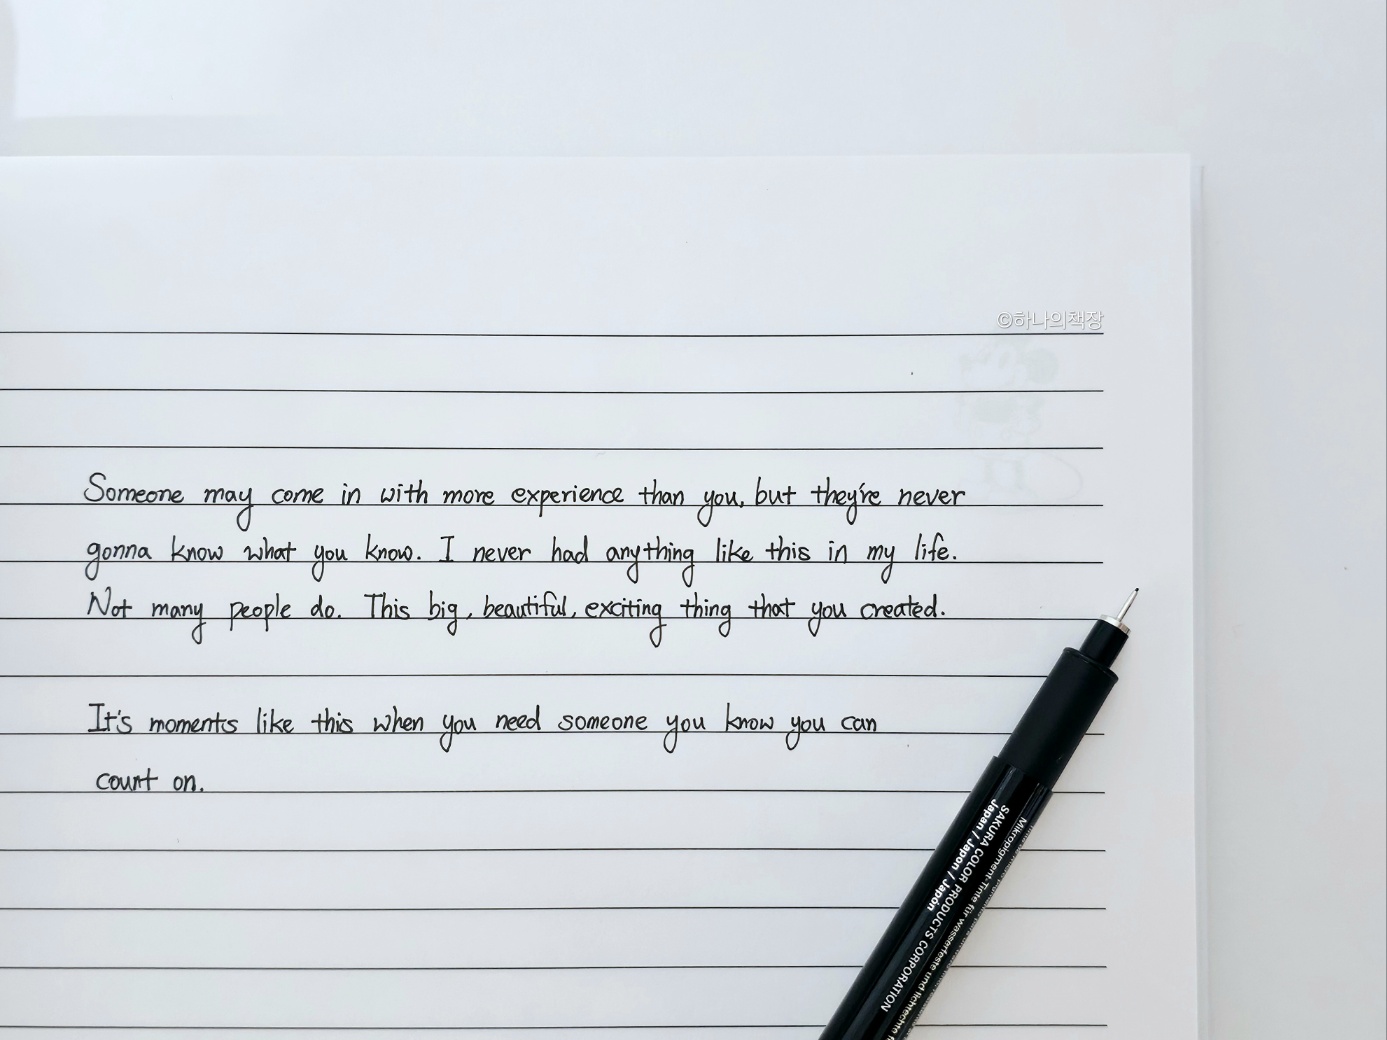 ©하나의책장
Someone may come in with more experience than you, but they're never
gonna know what you know. I never had anything like this in my life.
Not many people do. This big, beautiful, exciting thing that you created.
It's moments like this when you need someone you know you can
count on.
Mikropigment-Tinte für wasserfeste und lichtechte
SAKURA COLOR PRODUCTS CORPORATION
Japan / Japon / Japón